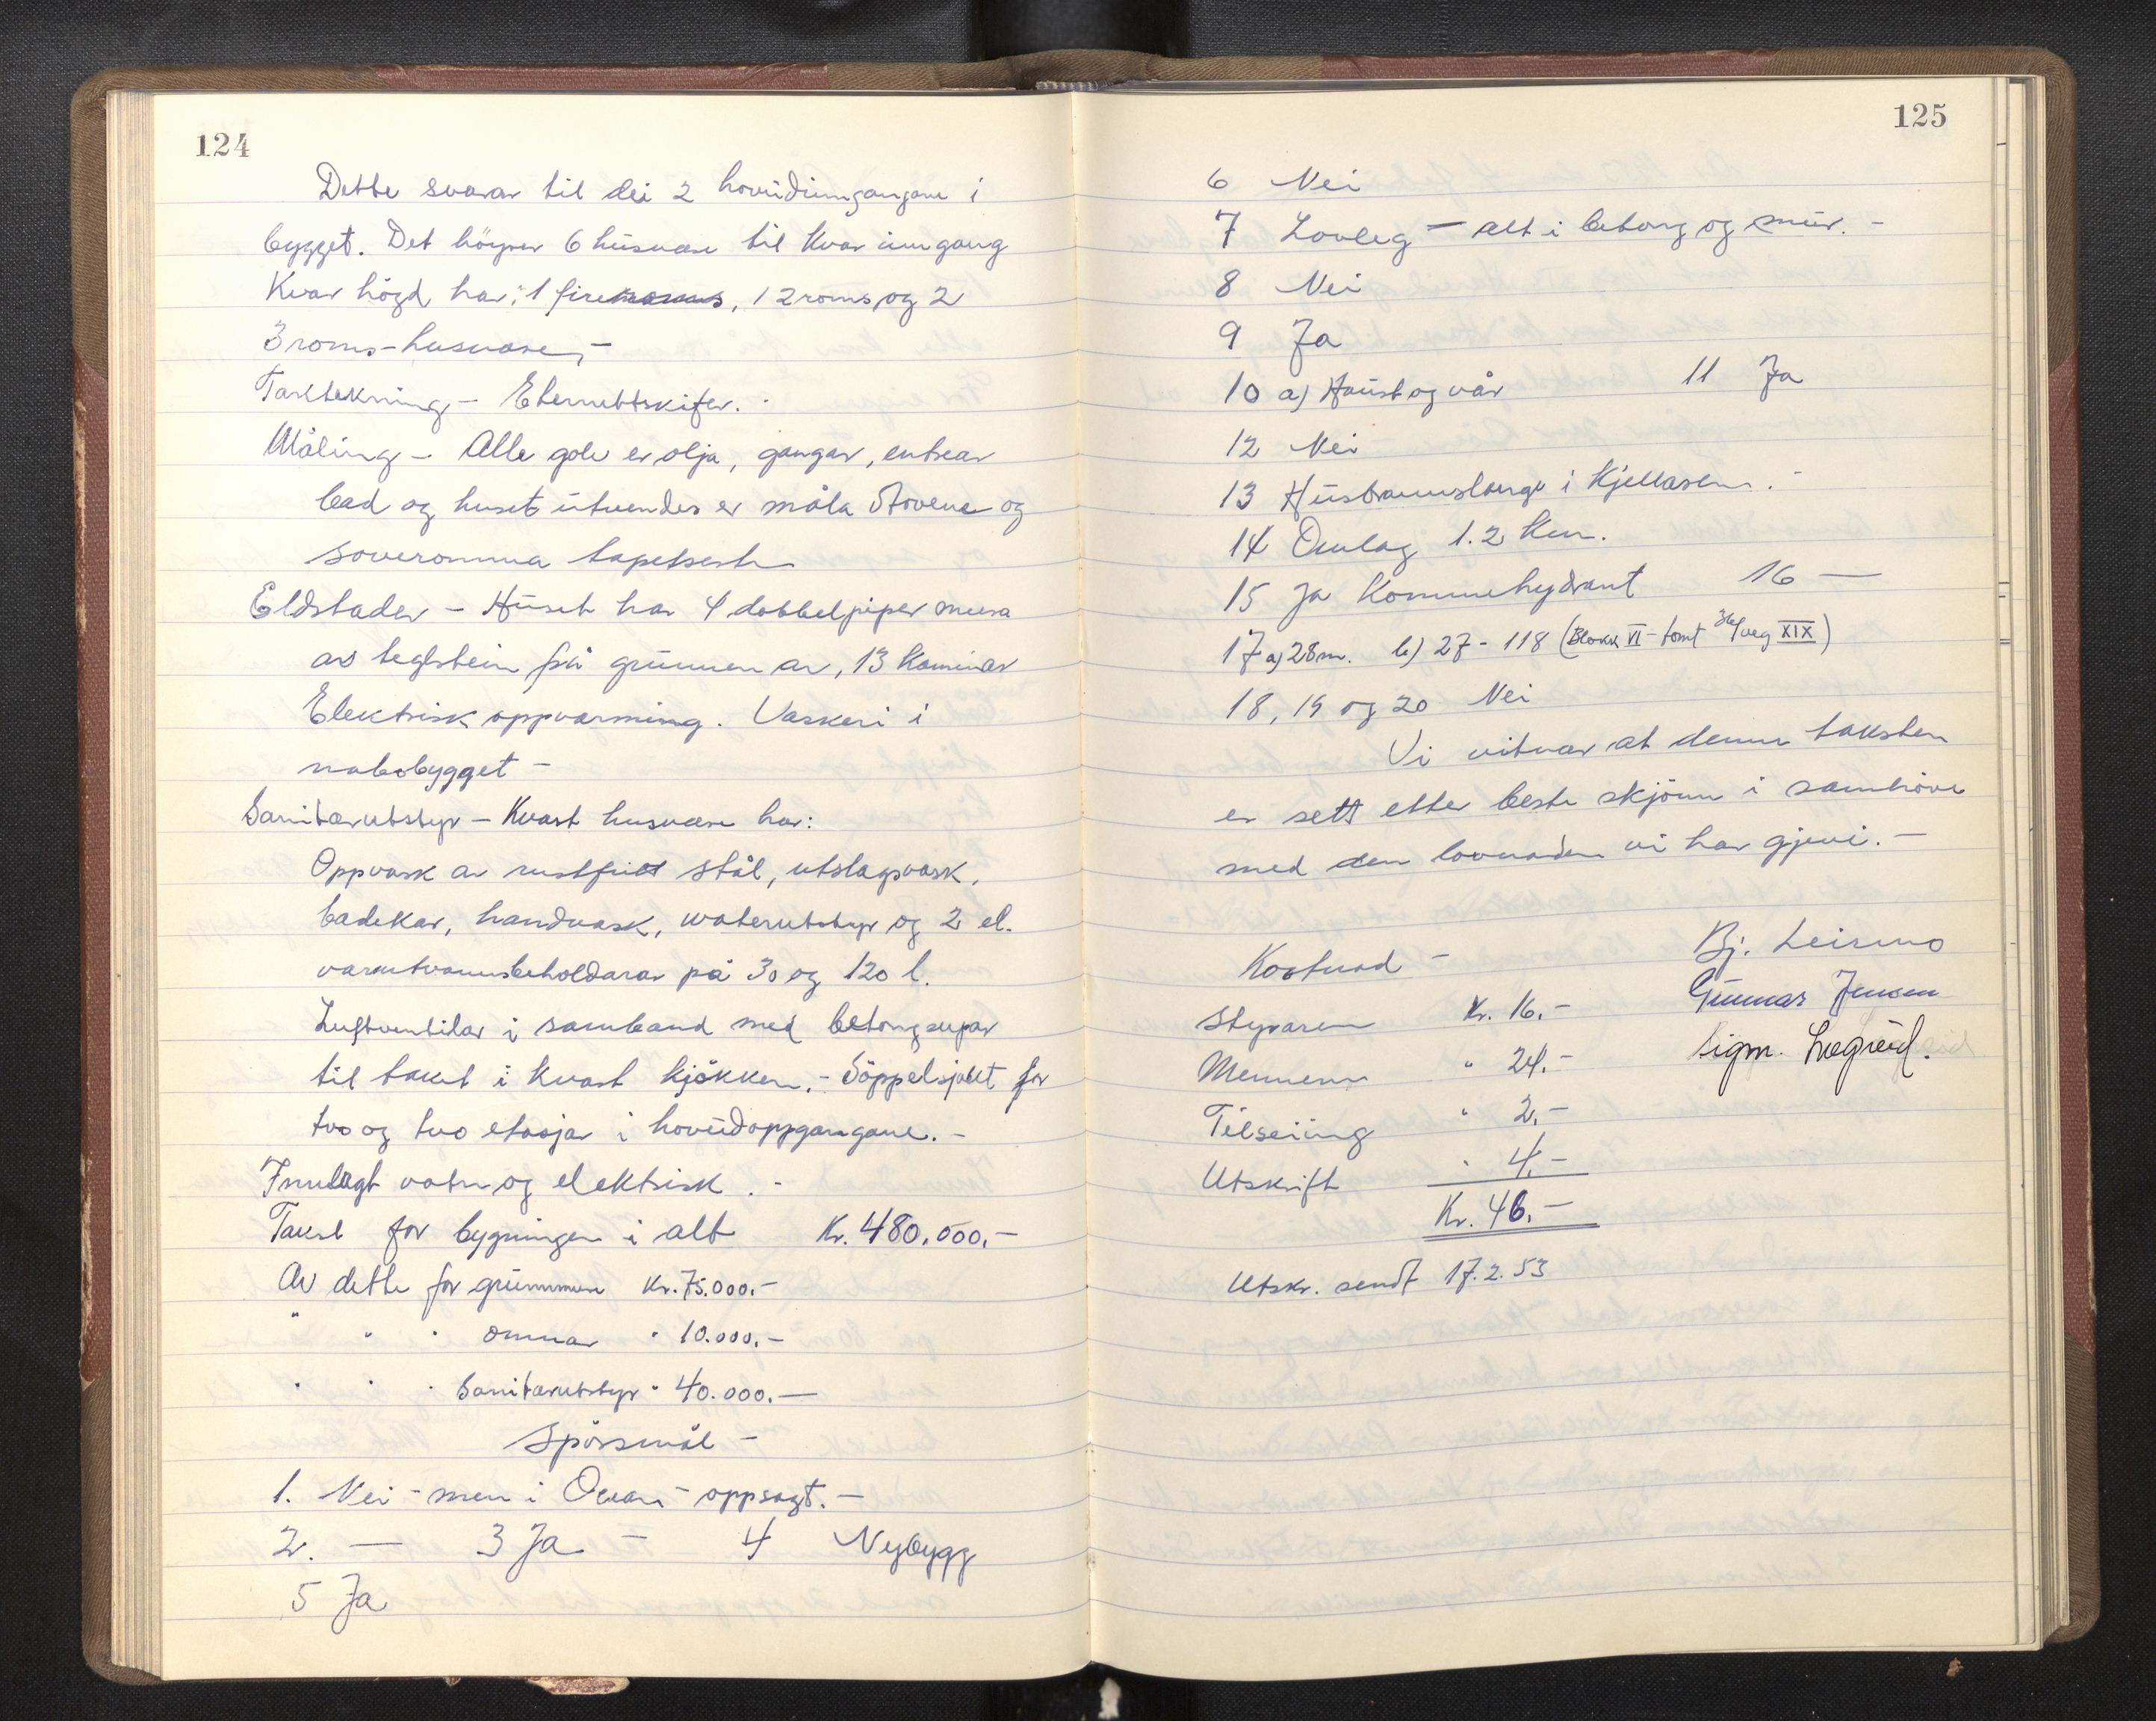 124
Dette svarar til dei 2 hovudinngangane i
bygget. Det höyrer 6 husvære til kvar inngang
Kvar högd har: 1 fireroms, 1 2roms og 2
3roms-husvære,-
Taktekning - Eternittskifer. -
Måling - Alle golv er olja, gangar, entrear
bad og huset utvendes er måla Stovene og
soveromma tapetsert
Eldstader - Huset har 4 dobbelpiper mura
av teglstein frå grunnen av, 13 kaminar
Elektrisk oppvarming. Vaskeri i
nabobygget -
Sanitærutstyr - Kvart husvære har:
Oppvask av rustfritt stål, utslagsvask,
badekar, handvask, waterutstyr og 2 el.
varmtvannsbeholdarar på 30 og 120 l.
Luftventilar i samband med betongpipar
til taket i kvart kjökken. - Söppelsjakt for
tvo og tvo etasjar i hovudoppgangane. -
Innlagt vatn og elektrisk. -
Takst for bygningen i alt Kr. 480.000.-
Av dette for grunnmur Kr. 75.000.-
" " " omnar " 10.000.-
" " " Sanitærutstyr " 40.000.-
Spörsmål -
1. Nei - men i - oppsagt. -
2. — 3 Ja - 4 Nybygg
5 Ja
125
6 Nei
7 Lovleg - alt i betong og mur. -
8 Nei
9 Ja
10 a) Haust og vår 11 Ja
12 Nei
13 Husbrannslange i Kjellaren. -
14 Omlag 1.2 Km.
15 Ja Kommehydrant 16 —
17 a) 28 m. b) 27 - 118 (Blokk VI - tomt 36/veg XIX)
18, 19 og 20 Nei
Vi vitnar at denne taksten
er sett etter beste skjönn i samhöve
med den lovnaden vi har gjevi. -
Kostnad - Bj. Leirmo
Styraren Kr. 16.- Gunnar Jensen
Mennene " 24.- Sigm. Lægreid.
Tilseiing " 2.-
Utskrift " 4.-
Kr. 46.-
Utskr. sendt 17.2.53